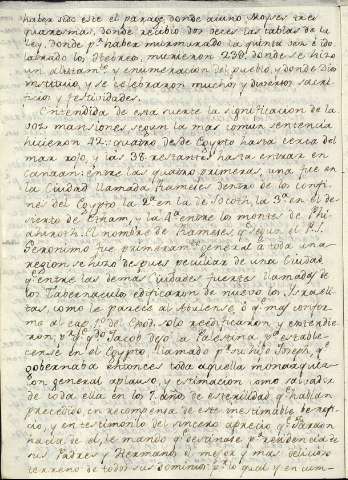 haber sido este el parage donde aiunò Moyses tres
quaresmas, donde recibio dos veces las tablas de la
Ley, donde pr haber murmurado la quinta
los Hebreos, murieron 23@. donde se hizo
un y enumeracion del pueblo, y donde Dios
instituiò, y se celebraron muchos y diversos sacri-
ficios y festividades.
Entendida de esta suerte la significacion de la
voz mansiones segun la mas comun sentencia
hicieron 42.: quatro desde Egypto hasta cerca del
mar roxo, y las 38. restantes hasta entrar en
Canaan: entre las quatro primeras, una fue en
la Ciudad llamada Rameses dentro de los confi-
nes del Egypto la 2a en la de Socoth, la 3a en el de-
sierto de Etham, y la 4a entre los montes de Phi-
ahiroth. El nombre de Rameses qe segun el P. S.
Geronimo fue primeramte general à toda una
region se hizo despues peculiar de una Ciudad
qe entre las demas Ciudades fuertes llamadas de
los Tabernaculos edificaron de nuevo los Israeli-
tas, como le parece al Abulense, ò qe mas confor-
me al cap. 1o del Exod. solo reedificaron, y extendie-
ron, pr qe qdo Jacob dejò la Palestina pa estable-
cerse en el Egypto llamado pr su hijo Joseph, qe
gobernaba entonces toda aquella monarquia
con general aplauso, y estimacion como salvador
de toda ella en los 7. años de esterilidad qe habian
precedido en recompensa de este inestimable benefi-
cio, y en testimonio del sincero aprecio qe Pharaon
hacia de el, le mando qe destinase pa residencia de
sus Padres y Hermanos el mejor y mas delicioso
terreno de todos sus dominios: pr lo qual y en cum-